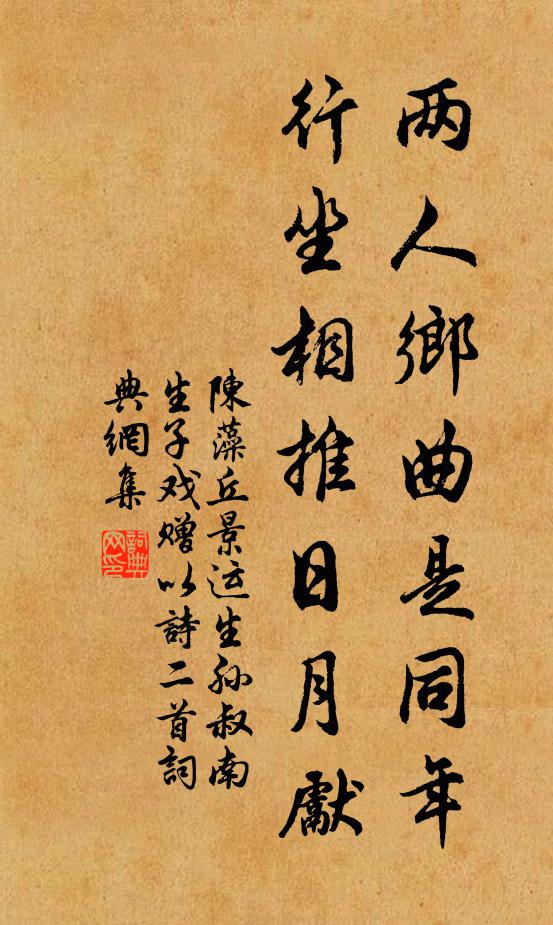 两人鄉曲是同年
行坐相推日月獻
陳藻丘景运生孙叔南
生子戏赠以詩二首詞
典網集
詞典网印